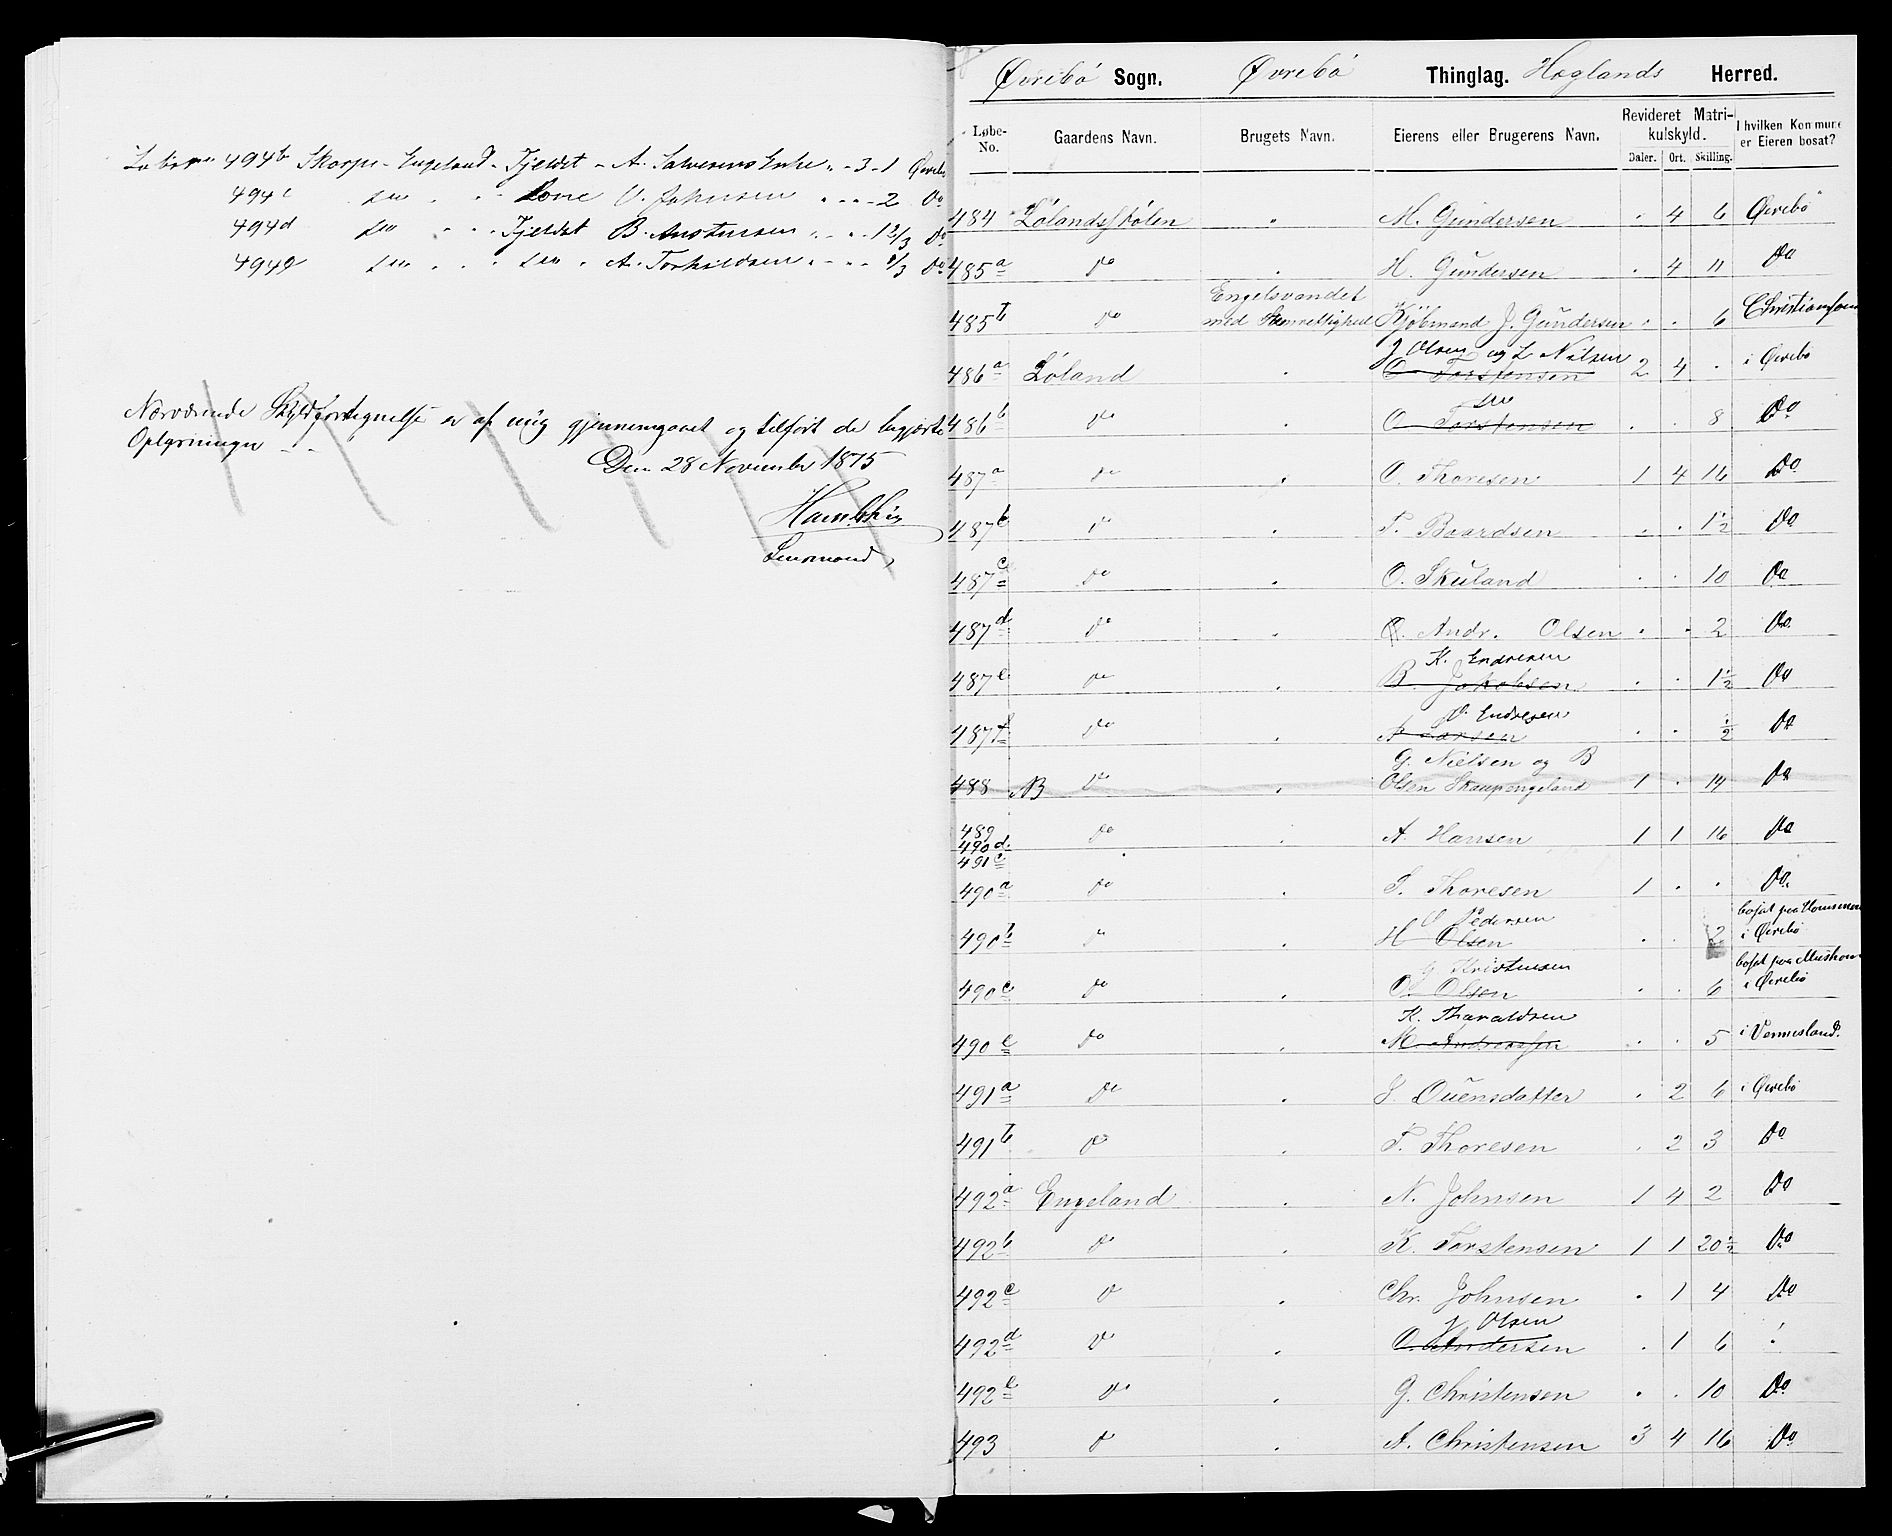 494b Skarpe-Engeland - Fjeldet - A. Salvesens Enke " - 3 - 1 Øvrebø
494c do " " Lone O. Johnsen " " - 2 Do
494d do " " Fjeldet B. Austensen " - " 1 2/3 Do
494e do " " do " A. Torkildsen " - " 1/3 Do
Nærværende Skyldfortegnelse er af mig gjennemgaaet og tilført de begjærte
Oplysninger - -
Den 28 November 1875
Lensmand
Øvrebö Sogn. Øvrebö Thinglag. Hæglands Herred.
Løbe-No. Gaardens Navn. Brugets Navn. Eierens eller Brugerens Navn. Revideret Matrikulskyld. Daler. Ort. Skilling. I hvilken Kommune er Eieren bosat?
484 Lölandsstölen " M. Gundersen . 4 6 Øvrebö
485a do . H. Gundersen . 4 11 Do
Engelsvandet
485b do med Kjöbmand J. Gundersen . . 6 Christianssand
J Olsen og L Nilsen
486a Löland . O Torstensen 2 4 . i Øvrebö
do
486b do . O Torstensen . . 8 Do
487a do . O. Thoresen 1 4 16 Do
487b do . T. Baardsen . . 1½ Do
487c do . O. Skuland . . 10 Do
487d do . O. Andr. Olsen . . 2 Do
K. Endresen
487e do . B. Jakobsen . . 1½ Do
O. Endresen
487f do . A Larsen . . ½ Do
G. Nielsen og B
488 NB do . Olsen Skaupengeland 1 . 14 Do
489
490d. do . A. Hansen 1 1 16 Do
491c
490a do . T. Thoresen 1 . . Do.
O Pedersen bosat paa
490b do . H Olsen . . 2 i Øvrebö
G Kristensen bosat paa
490c do . O. Olsen . . 6 i Øvrebö
K. Tharaldsen
490e do . M. Andreassen . . 5 i Vennesland.
491a do . S. Ouensdatter . 2 6 i Øvrebö
491b do . T. Thoresen . 2 3 Do
492a Engeland . N. Johnsen 1 4 2 Do
492b do . K. Torstensen 1 1 20½ Do
492c do . Chr. Johnsen . 1 4 Do
J Olsen
492d do . O. Andersen . 1 6 .
492e do . G. Christensen . . 10 Do
493 do . A. Christensen 3 4 16 Do